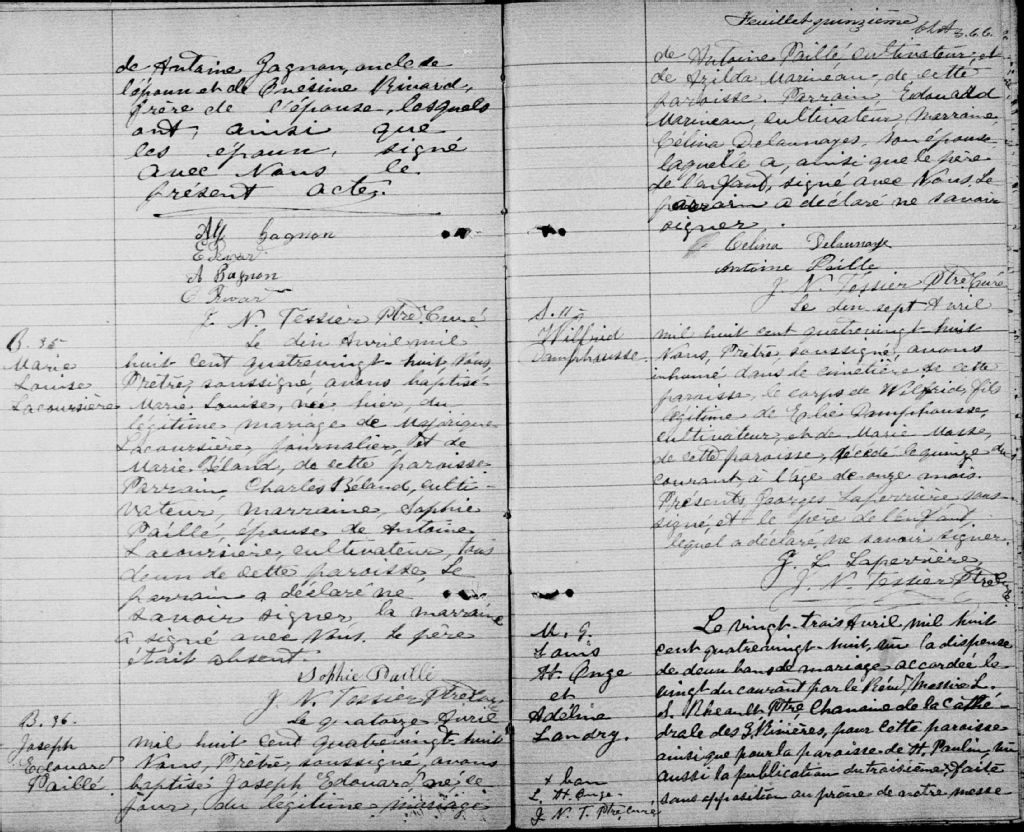 de Antoine Gagnon, oncle de
l'époux et de Onésime Rivard,
frère de l'épouse, lesquels
ont, ainsi que
les époux, signé
avec Nous le
présent acte.
Alf Gagnon
E Rivard
A Gagnon
O Rivard
J. N. Tessier Ptre Curé
B. 35
Marie
Louise
Lacoursière
Le dix Avril mil
huit cent quatrevingt-huit, Nous,
Prêtre, soussigné, avons baptisé
Marie Louise, née hier, du
légitime mariage de Majorique
Lacoursière, journalier, et de
Marie Béland, de cette paroisse.
Parrain, Charles Béland, culti-
vateur, marraine, Sophie
Paillé, épouse de Antoine
Lacoursière, cultivateur, tous
deux de cette paroisse, Le
parrain a déclaré ne
savoir signer, la marraine
a signé avec Nous. Le père
était absent.
Sophie Paillé
J. N. Tessier Ptre Curé
B. 36.
Joseph
Edouard
Paillé
Le quatorze Avril
mil huit cent quatrevingt-huit
Nous, Prêtre, soussigné, avons
baptisé Joseph Edouard né ce
jour, du légitime mariage
Feuillet quinzième
de Antoine Paillé, cultivateur, et
de Exilda Marineau, de cette
paroisse. Parrain, Edouard
Marineau, cultivateur, Marraine,
Célina Delaunayes, son épouse
laquelle a, ainsi que le père
de l'enfant, signé avec Nous, Le
parrain a déclaré ne savoir
signer.
Celina Delaunaye
Antoine Paille
J. N. Tessier Ptre Curé
Wilfrid
Damphousse.
Le dix sept Avril
mil huit cent quatrevingt-huit
Nous, Prêtre, soussigné, avons
inhumé dans le cimetière de cette
paroisse, le corps de Wilfrid, fils
légitime de Damphousse,
cultivateur, et de Marie Masse,
de cette paroisse, décédé le quinze du
courant, à l'âge de onze mois.
Présents Georges Laperrière sous-
signé, et le père de l'enfant
lequel a déclaré ne savoir signer.
G. L. Laperrière
J. N. Tessier Ptre Curé
M. 9.
Louis
St. Onge
et
Adéline
Landry.
Le vingt-trois Avril mil huit
cent quatrevingt-huit, vu la dispense
de deux bans de mariage accordée le
vingt du courant par le Révd Messire L.
S. Rheault Ptre Chanoine de la Cathé-
drale des 3 Rivières, pour cette paroisse
ainsi que pour la paroisse de St. Paulin, vu
aussi la publication du troisième, faite
sans opposition au prône de notre messe
+ ban
L. St. Onge
J. N. T. Ptre Curé